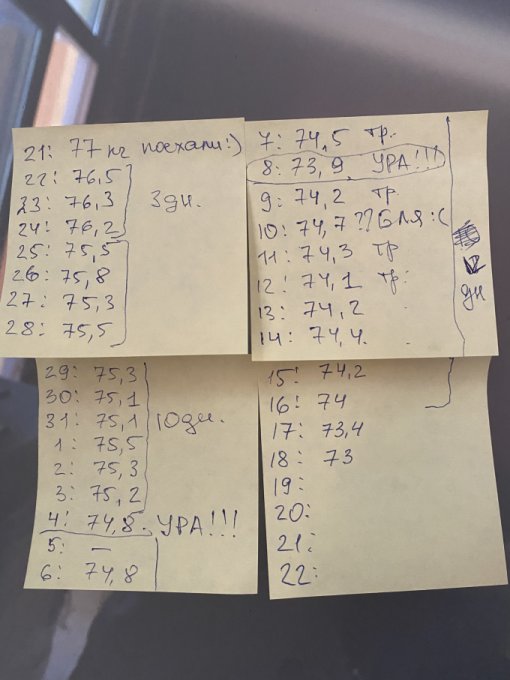 21: 77 кг поехали:)
22: 76,5
23: 76,3
3 дн.
24: 76,2
25: 75,5
26: 75,8
27: 75,3
28: 75,5
29: 75,3
30: 75,1
31: 75,1
10 дн.
1: 75,5
2: 75,3
3: 75,2
4: 74,8. УРА!!!
5: —
6: 74,8
7: 74,5 тр.
8: 73,9 УРА!!!
9: 74,2 тр
10: 74,7 ?? БЛЯ :(
11: 74,3 тр
12: 74,1 тр.
12 дн
13: 74,2
14: 74,4
15: 74,2
16: 74
17: 73,4
18: 73
19:
20:
21:
22: